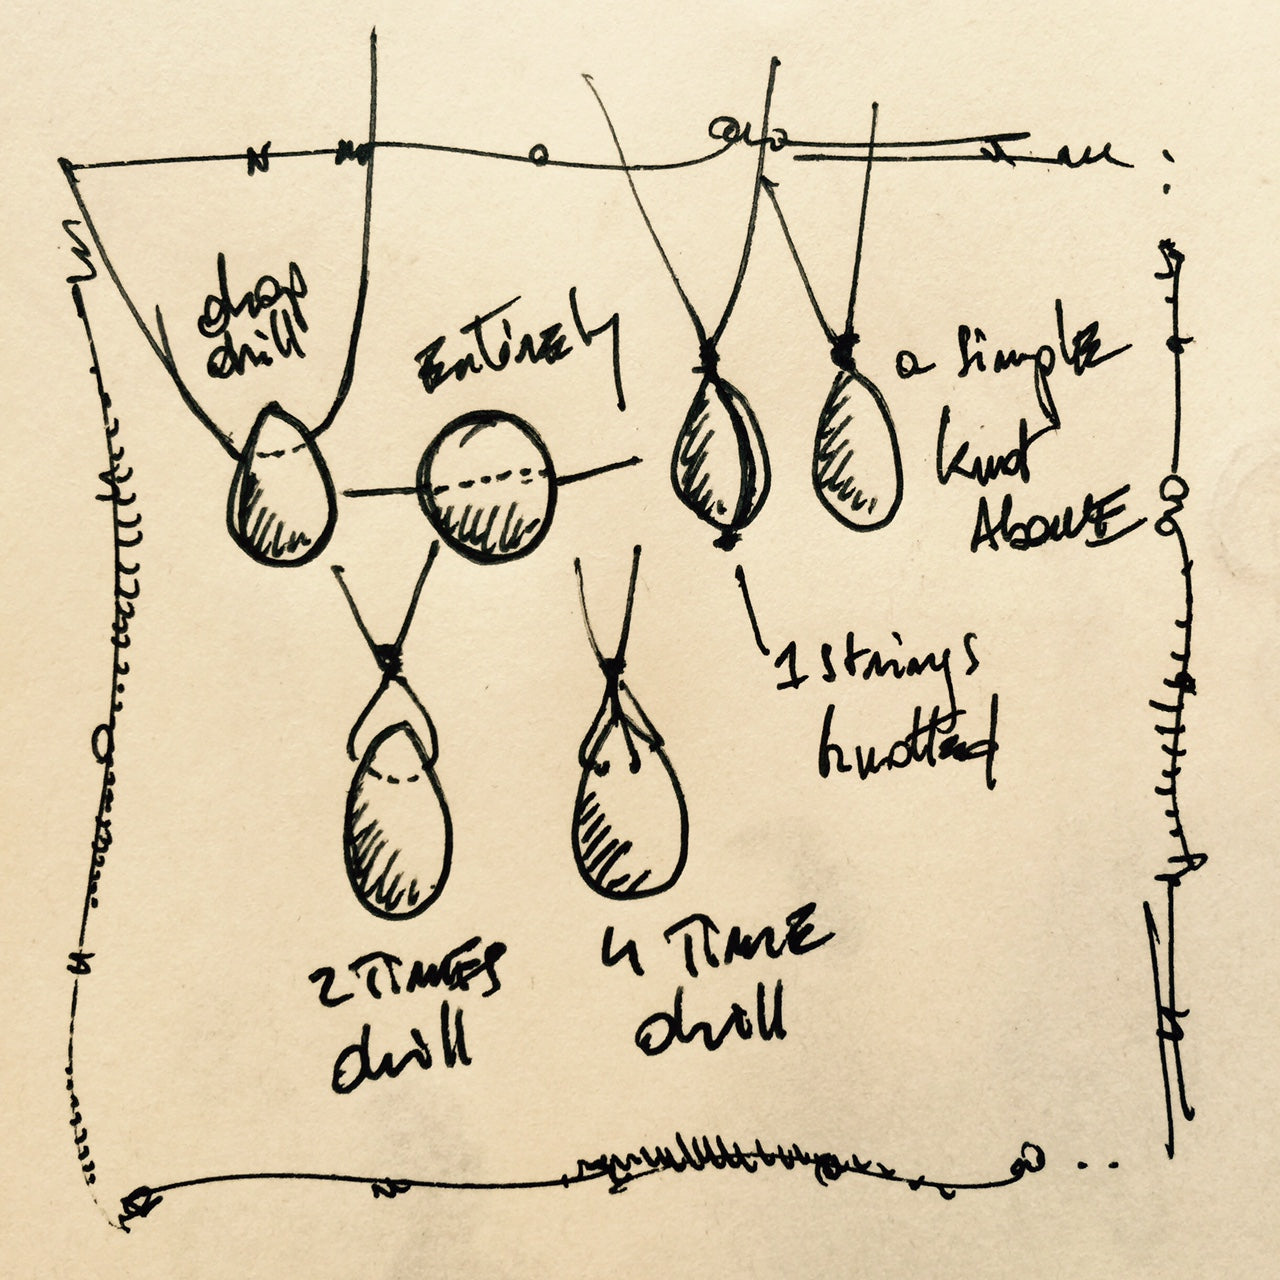 drop
drill
Entirely
a simple
knot
Above
1 strings
knotted
2 Times
drill
4 Time
drill